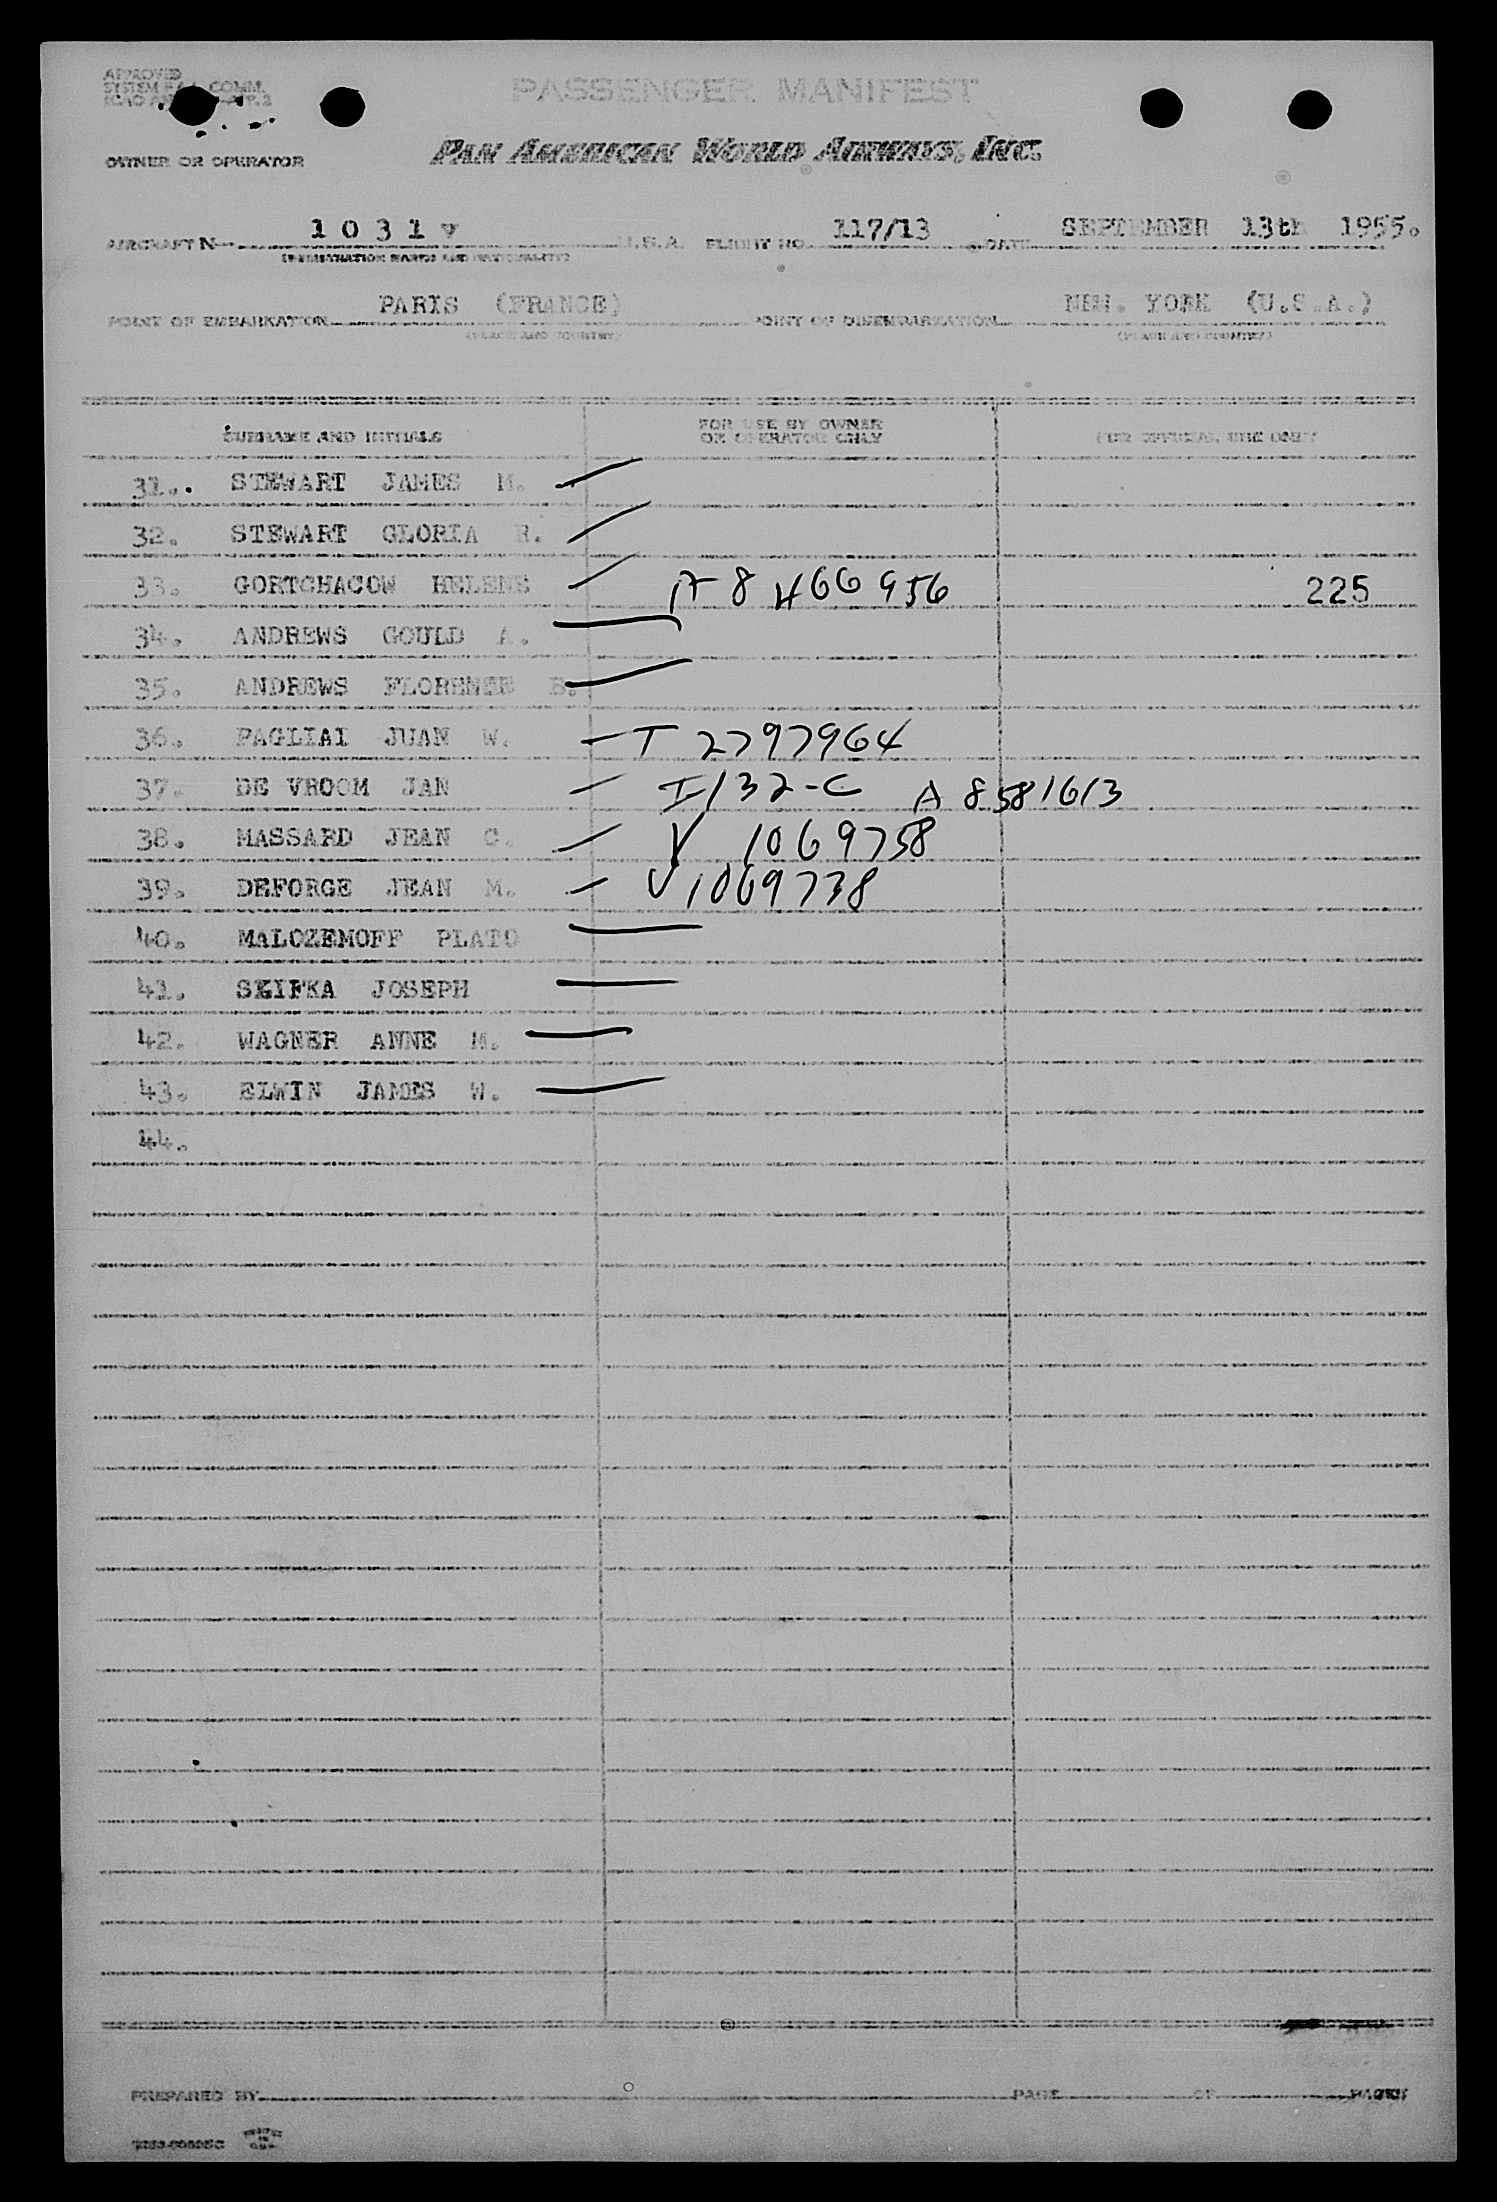 APPROVED
SYSTEM COMM.
PASSENGER MANIFEST
OWNER OR OPERATOR PAN AMERICAN WORLD AIRWAYS, INC.
AIRCRAFT N 1 0 3 1 V U.S.A. FLIGHT NO. 117/13 DATE SEPTEMBER 13th 1955.
(REGISTRATION MARKS AND NATIONALITY)
POINT OF EMBARKATION PARIS (FRANCE) POINT OF DISEMBARKATION NEW. YORK (U.S.A.)
(PLACE AND COUNTRY) (PLACE AND COUNTRY)
SURNAME AND INITIALS FOR USE BY OWNER OR OPERATOR ONLY FOR OFFICIAL USE ONLY
31.. STEWART JAMES M.
32. STEWART GLORIA R.
33. GORTCHACOW HELENE A 8 466 956 225
34. ANDREWS GOULD A.
35. ANDREWS FLORENCE B.
36. PAGLIAI JUAN W. T 2797964
37. DE VROOM JAN I 132-C A 8581613
38. MASSARD JEAN C. V 1069758
39. DEFORGE JEAN M. V 1069738
40. MALOZEMOFF PLATO
41. JOSEPH
42. WAGNER ANNE M.
43. ELWIN JAMES W.
44.
PREPARED BY PAGE OF PAGES